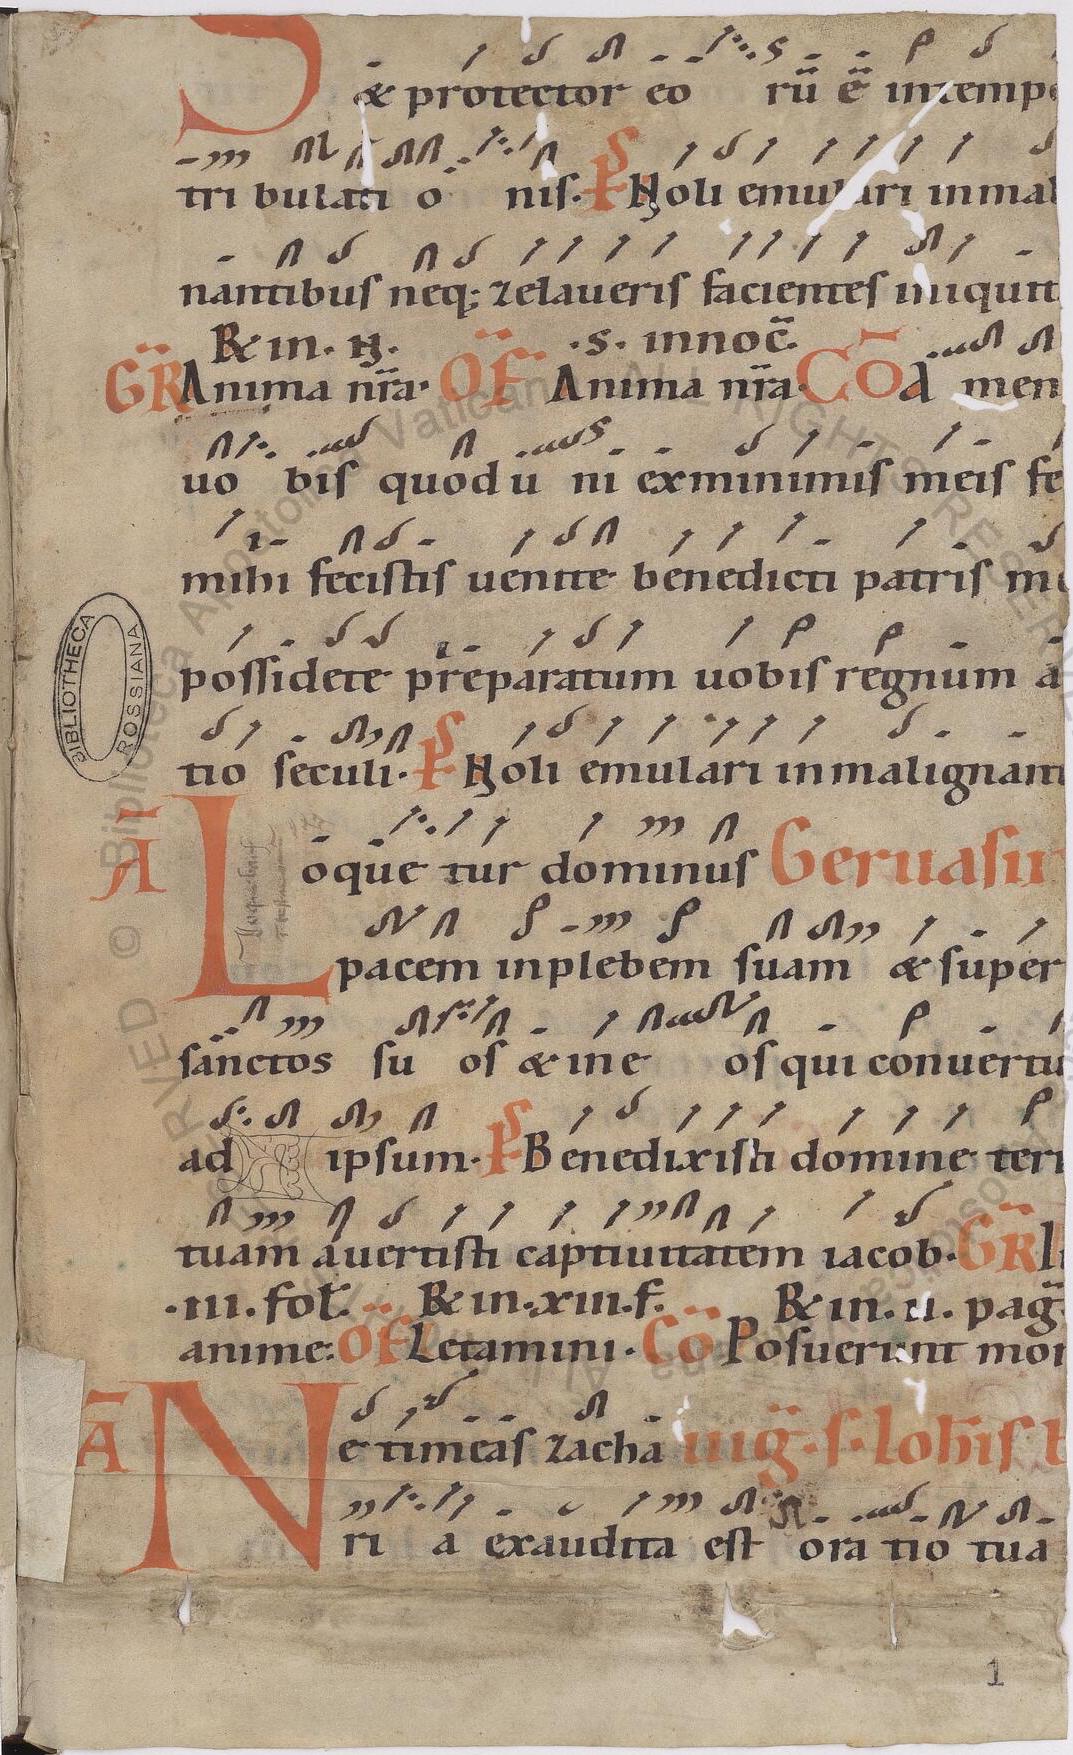 S & protector eo rū ē intempo
tri bulati o nis. Ps Noli emulari inmal
nantibus neq; zelaueris facientes iniquit
R& in. N. .s. innoc̄.
GR Anima nr̄a. OF Anima nr̄a. CŌ d men
uo bis quod u ni exminimis meis fe
mihi fecistis uenite benedicti patris me
possidete preparatum uobis regnum a
BIBLIOTHECA ROSSIANA
tio seculi. Ps Noli emulari inmalignant
Ā Loque tur dominus Geruasii
pacem inplebem suam & super
sanctos su os & in e os qui conuertu
ad ipsum. Ps Benedixisti domine terr
tuam auertisti captiuitatem iacob. GR
.III. fol. R& in. XIII. f. R& in. II. pag
anime. OF Letamini. CŌ Posuerunt mor
Ā Ne timeas zacha uig. s. Iohis b
ri a exaudita est ora tio tua
1